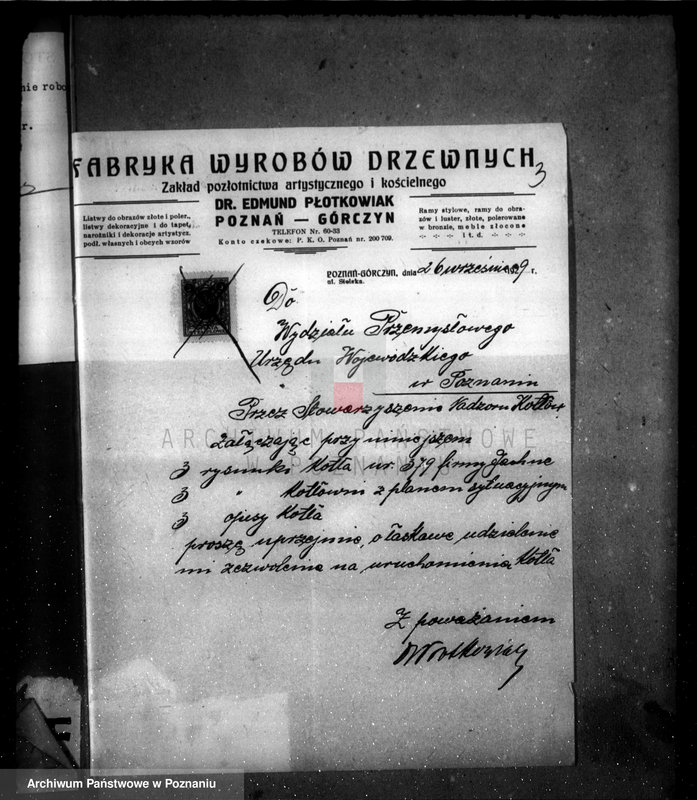 nie robo
r.
FABRYKA WYROBÓW DRZEWNYCH
3
Zakład pozłotnictwa artystycznego i kościelnego
DR. EDMUND PŁOTKOWIAK
POZNAŃ — GÓRCZYN
TELEFON Nr. 60-33
Konto czekowe: P. K. O. Poznań nr. 200 709.
Listwy do obrazów złote i poler.,
listwy dekoracyjne i do tapet,
narożniki i dekoracje artystycz.
podł. własnych i obcych wzorów
Ramy stylowe, ramy do obra-
zów i luster, złote, polerowane
w bronzie, meble złocone
i t. d.
POZNAŃ-GÓRCZYN, dnia 26 września 1929 r.
ul. Sielska.
Do
Wydziału Przemysłowego
Urzędu Wojewódzkiego
w Poznaniu
Przez Stowarzyszenie Nadzoru Kotłów
załączając przy niniejszem
3 rysunki kotła nr. 379 firmy
3 " kotłowni z planem sytuacyjnym
3 opisy kotła
proszę uprzejmie, o łaskawe udzielenie
mi zezwolenia na uruchomienia kotła
Z poważaniem
Płotkowiak
ARCHIWUM PAŃSTWOWE
W POZNANIU
Archiwum Państwowe w Poznaniu